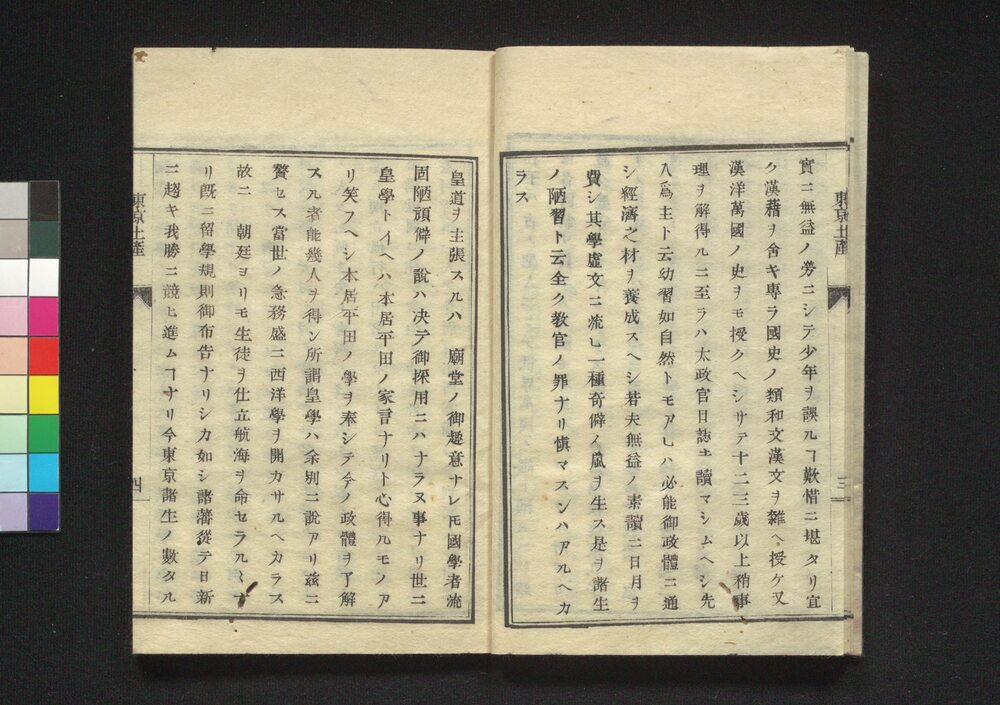 東京土產
三
實ニ無益ノ勞ニシテ少年ヲ誤ルヿ歎惜ニ堪タリ宜
ク漢藉ヲ舍キ專ラ國史ノ類和文漢文ヲ雜ヘ授ケ又
漢洋萬國ノ史ヲモ授クヘシサテ十二三歲以上稍事
理ヲ解得ルニ至ラハ太政官日誌ヲモ讀マシムヘシ先
入爲主ト云幼習如自然トモアレハ必能御政體ニ通
シ經濟之材ヲ養成スヘシ若夫無益ノ素讀ニ日月ヲ
費シ其學虛文ニ流レ一種奇僻ノ風ヲ生ス是ヲ諸生
ノ陋習ト云全ク敎官ノ罪ナリ愼マスンハアルヘカ
ラス
皇道ヲ主張スルハ 廟堂ノ御趣意ナレ𪜈國學者流
固陋頑僻ノ說ハ决テ御採用ニハナラヌ事ナリ世ニ
皇學トイヘハ本居平田ノ家言ナリト心得ルモノア
リ笑フヘシ本居平田ノ學ヲ奉シテ今ノ政體ヲ了解
スル者能幾人ヲ得ン所謂皇學ハ余別ニ說アリ茲ニ
贅セス當世ノ急務盛ニ西洋學ヲ開カサルヘカラス
故ニ 朝廷ヨリモ生徒ヲ仕立航海ヲ命セラルヽ
リ旣ニ留學規則御布告ナリシカ如シ諸藩從テ日新
ニ趨キ我勝ニ競ヒ進ムヿナリ今東京諸生ノ數タル
東京土產
四